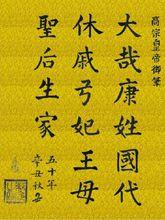 高宗皇帝御筆
大哉康姓國代
休戚弓妃王母
聖后生家
五十年
辛丑秋書